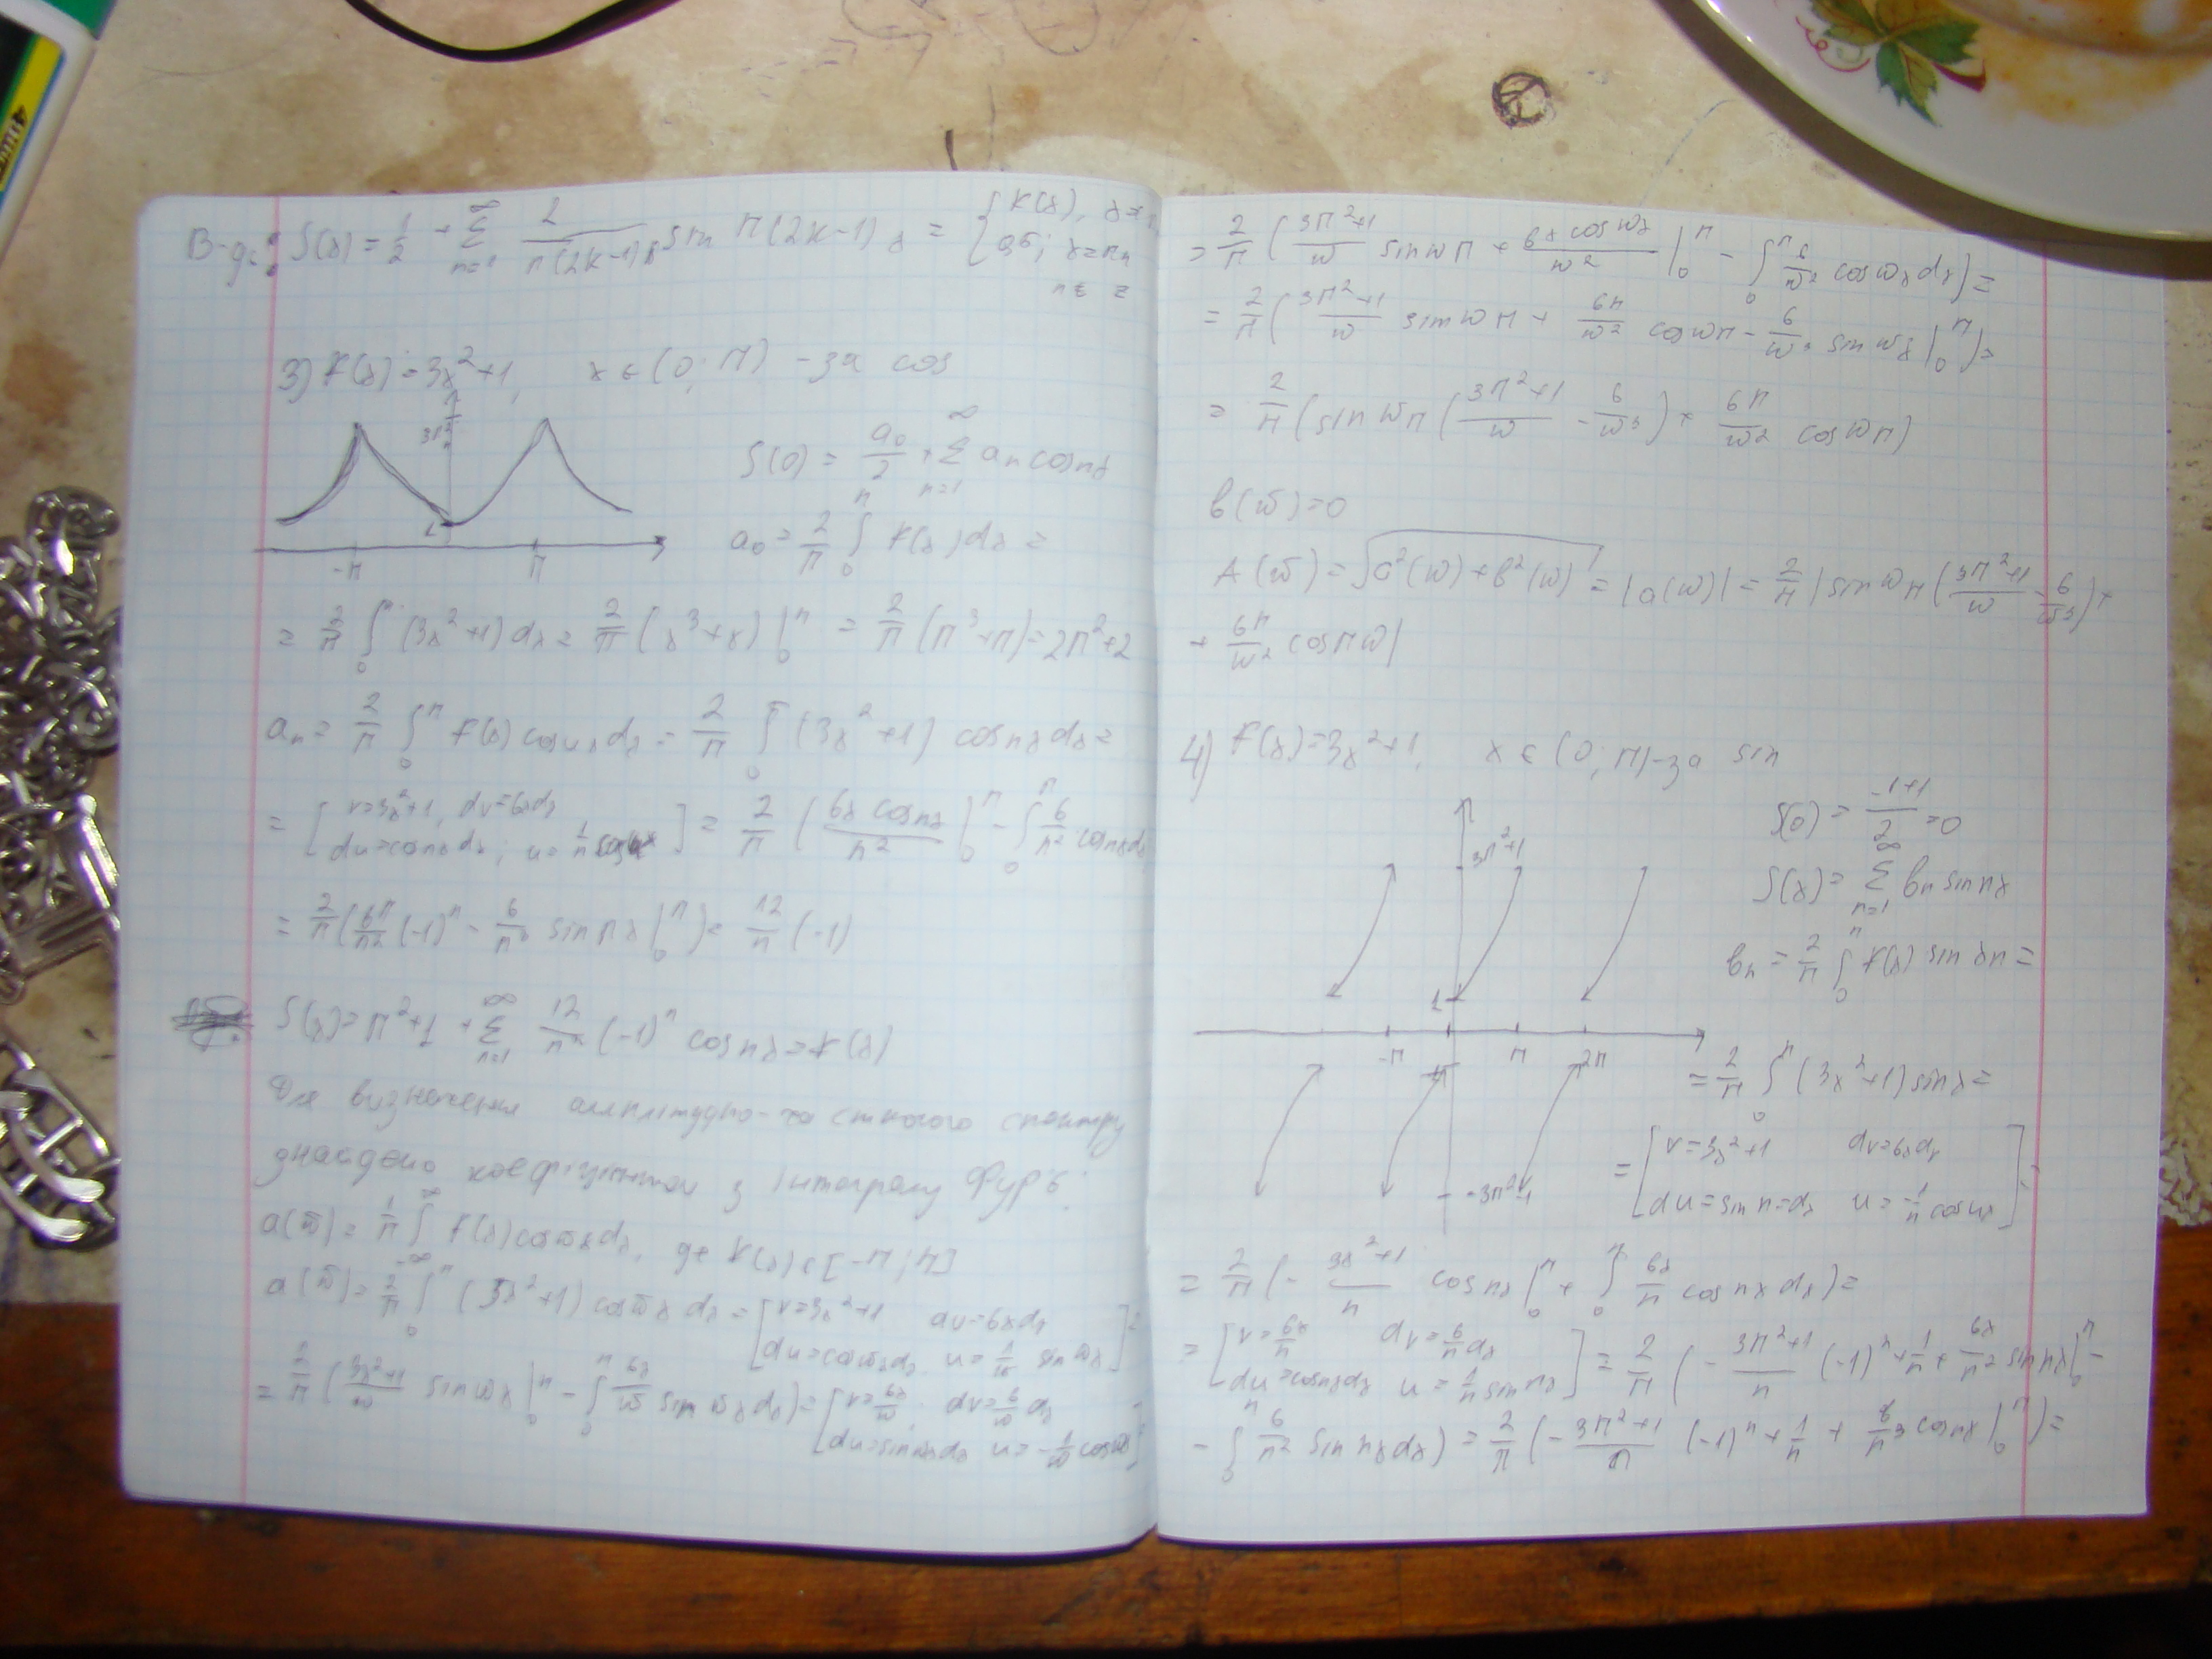 В-дь: S(x) = 1/2 + ∞ Σ n=1 2/(π(2k-1)) sin π(2k-1) x = { f(x), x≠
0,5; x=πn
n ∋ z
3) f(x) = 3x²+1, x ∈ (0; π) - за cos
3π²
S(0) = a₀/2 + ∞ Σ n=1 aₙ cos nx
1
-π π
a₀ = 2/π ∫₀^π f(x) dx =
= 2/π ∫₀^π (3x²+1) dx = 2/π (x³+x) |₀^π = 2/π (π³+π) = 2π²+2
aₙ = 2/π ∫₀^π f(x) cos nx dx = 2/π ∫₀^π (3x²+1) cos nx dx =
= [ v=3x²+1, dv=6xdx
du=cosnx dx; u = 1/n ] = 2/π ( 6x cosnx/n² |₀^π - ∫₀^π 6/n² cosnxdx
= 2/π ( 6π/n² (-1)ⁿ - 6/n³ sin nx |₀^π ) = 12/n (-1)
S(x) = π²+1 + ∞ Σ n=1 12/n² (-1)ⁿ cos nx = f(x)
Для визначення амплітудно-частотного спектру
знайдемо коефіцієнти з інтегралу Фур'є:
a(ω) = 1/π ∫_{-∞}^{∞} f(x) cos ωx dx, де f(x) ∈ [-π; π]
a(ω) = 2/π ∫₀^π (3x²+1) cos ωx dx = [ v=3x²+1 dv=6xdx
du=cosωxdx u = 1/ω sin ωx ] =
= 2/π ( (3x²+1)/ω sin ωx |₀^π - ∫₀^π 6x/ω sin ωx dx) = [ v=6x/ω; dv=6/ω dx
du=sinωxdx u = -1/ω cosωx ] =
= 2/π ( (3π²+1)/ω sin ωπ + 6x cos ωx/ω² |₀^π - ∫₀^π 6/ω² cos ωx dx) =
= 2/π ( (3π²+1)/ω sin ωπ + 6π/ω² cos ωπ - 6/ω³ sin ωx |₀^π ) =
= 2/π ( sin ωπ ( (3π²+1)/ω - 6/ω³ ) + 6π/ω² cos ωπ)
b(ω) = 0
A(ω) = √(a²(ω) + b²(ω)) = |a(ω)| = 2/π | sin ωπ ( (3π²+1)/ω - 6/ω³ ) +
+ 6π/ω² cos πω|
4) f(x) = 3x²+1, x ∈ (0; π) - за sin
S(0) = (-1+1)/2 = 0
3π²+1
S(x) = ∞ Σ n=1 bₙ sin nx
bₙ = 2/π ∫₀^π f(x) sin xn =
1
-π π 2π
-1
= 2/π ∫₀^π (3x²+1) sin x =
= [ v=3x²+1 dv=6xdx
-3π²-1
du = sin n dx u = -1/n cos nx ] =
= 2/π ( - (3x²+1)/n cos nx |₀^π + ∫₀^π 6x/n cos nx dx) =
= [ v=6x/n dv=6/n dx
du=cosnxdx u = 1/n sin nx ] = 2/π ( - (3π²+1)/n (-1)ⁿ + 1/n + 6x/n² sin nx |₀^π -
- ∫₀^π 6/n² sin nx dx) = 2/π ( - (3π²+1)/n (-1)ⁿ + 1/n + 6/n³ cos nx |₀^π ) =